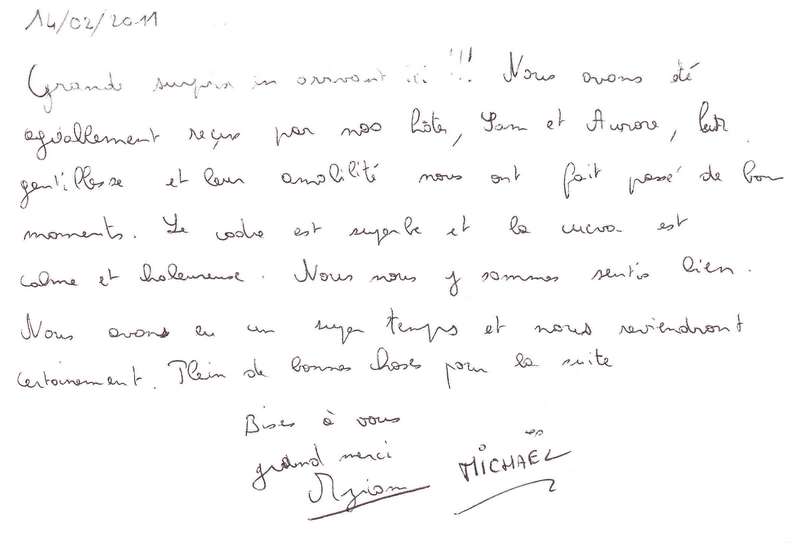 14/02/2011
Grande surprise en arrivant ici !!! Nous avons été
agréablement reçus par nos hôtes, Sam et Aurore, leur
gentillesse et leur amabilité nous ont fait passé de bon
moments. Le cadre est superbe et la est
calme et chaleureuse. Nous nous y sommes sentis bien.
Nous avons eu un super temps et nous reviendront
certainement. Plein de bonnes choses pour la suite
Bises à vous
grand merci
MICHAËL